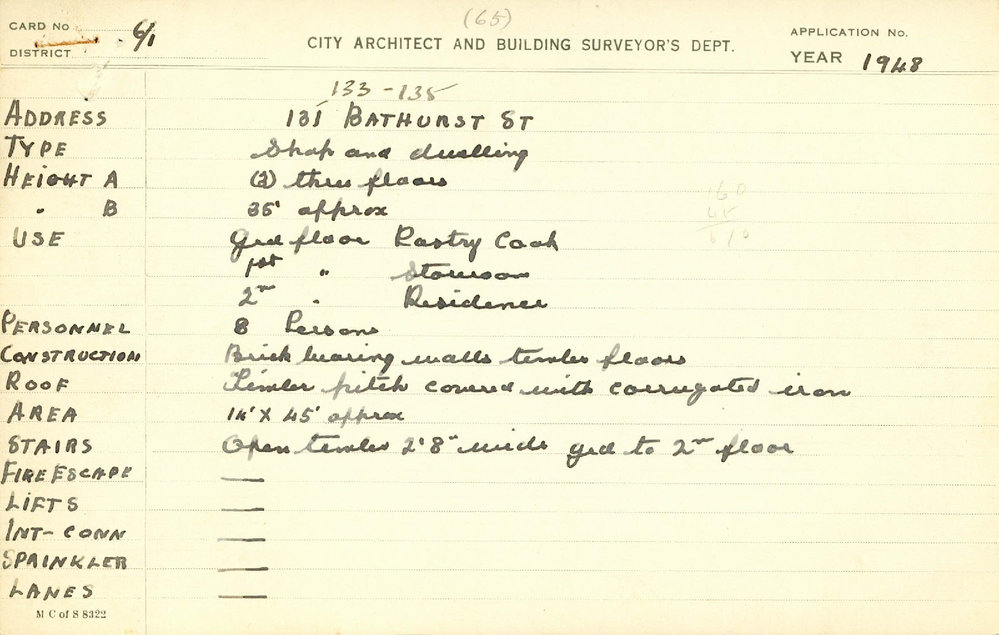 (65)
CARD No 6/1
DISTRICT
CITY ARCHITECT AND BUILDING SURVEYOR'S DEPT.
APPLICATION No.
YEAR 1948
133-135
ADDRESS 131 BATHURST ST
TYPE Shop and dwelling
HEIGHT A (3) three floors
" B 35' approx
USE Grd floor Pastry Cook
1st " Storeroom
2nd " Residence
PERSONNEL 8 Persons
CONSTRUCTION Brick bearing walls timber floors
ROOF Timber pitch covered with corrugated iron
AREA x 45' approx
STAIRS Open timber 2'8" wide grd to 2nd floor
FIRE ESCAPE —
LIFTS —
INT-CONN —
SPRINKLER —
LANES —
M C of S 8322
160
45